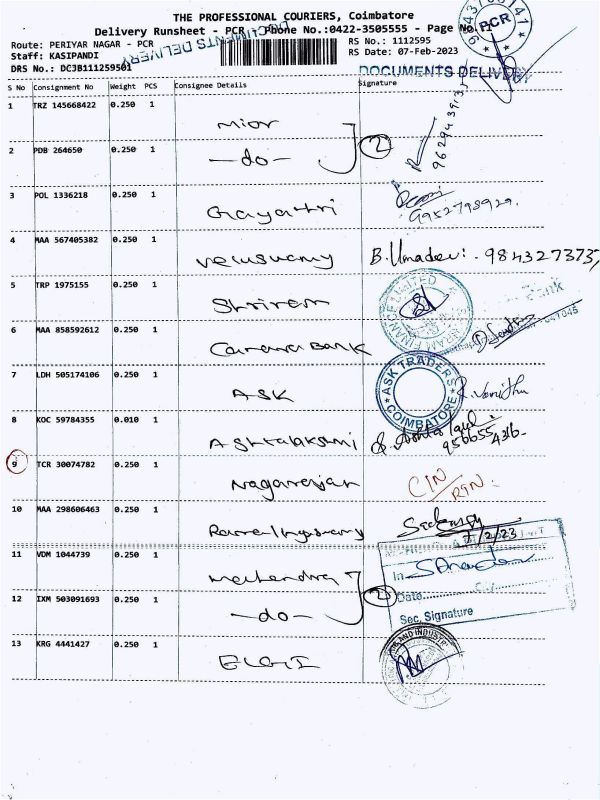 THE PROFESSIONAL COURIERS, Coimbatore
Delivery Runsheet - PCR Phone No.:0422-3505555 - Page No.
Route: PERIYAR NAGAR - PCR
RS No.: 1112595
Staff: KASIPANDI
RS Date: 07-Feb-2023
DRS No.: DC3B111259501
DOCUMENTS DELIVERY
DOCUMENTS DELIVERY
PCR
S No Consignment No Weight PCS Consignee Details Signature
9629439135
1 TRZ 145668422 0.250 1 Mior
2 PDB 264650 0.250 1 -do- 2
3 POL 1336218 0.250 1 Gayathri 9952798929.
4 MAA 567405382 0.250 1 Veluswamy B. Umadevi. 984327373
5 TRP 1975155 0.250 1 Shriram
6 MAA 858592612 0.250 1 Canara BANK
7 LDH 505174106 0.250 1 ASK ASK TRADERS COIMBATORE R. Vanitha
8 KOC 59784355 0.010 1 Ashtalakshmi
9 TCR 30074782 0.250 1 Nagarajan CIN RTN.
10 MAA 298606463 0.250 1 7/2/23
11 VDM 1044739 0.250 1 Mahendra
In
Date
12 IXM 503091693 0.250 1 -do- 2
Sec. Signature
13 KRG 4441427 0.250 1 ELGI